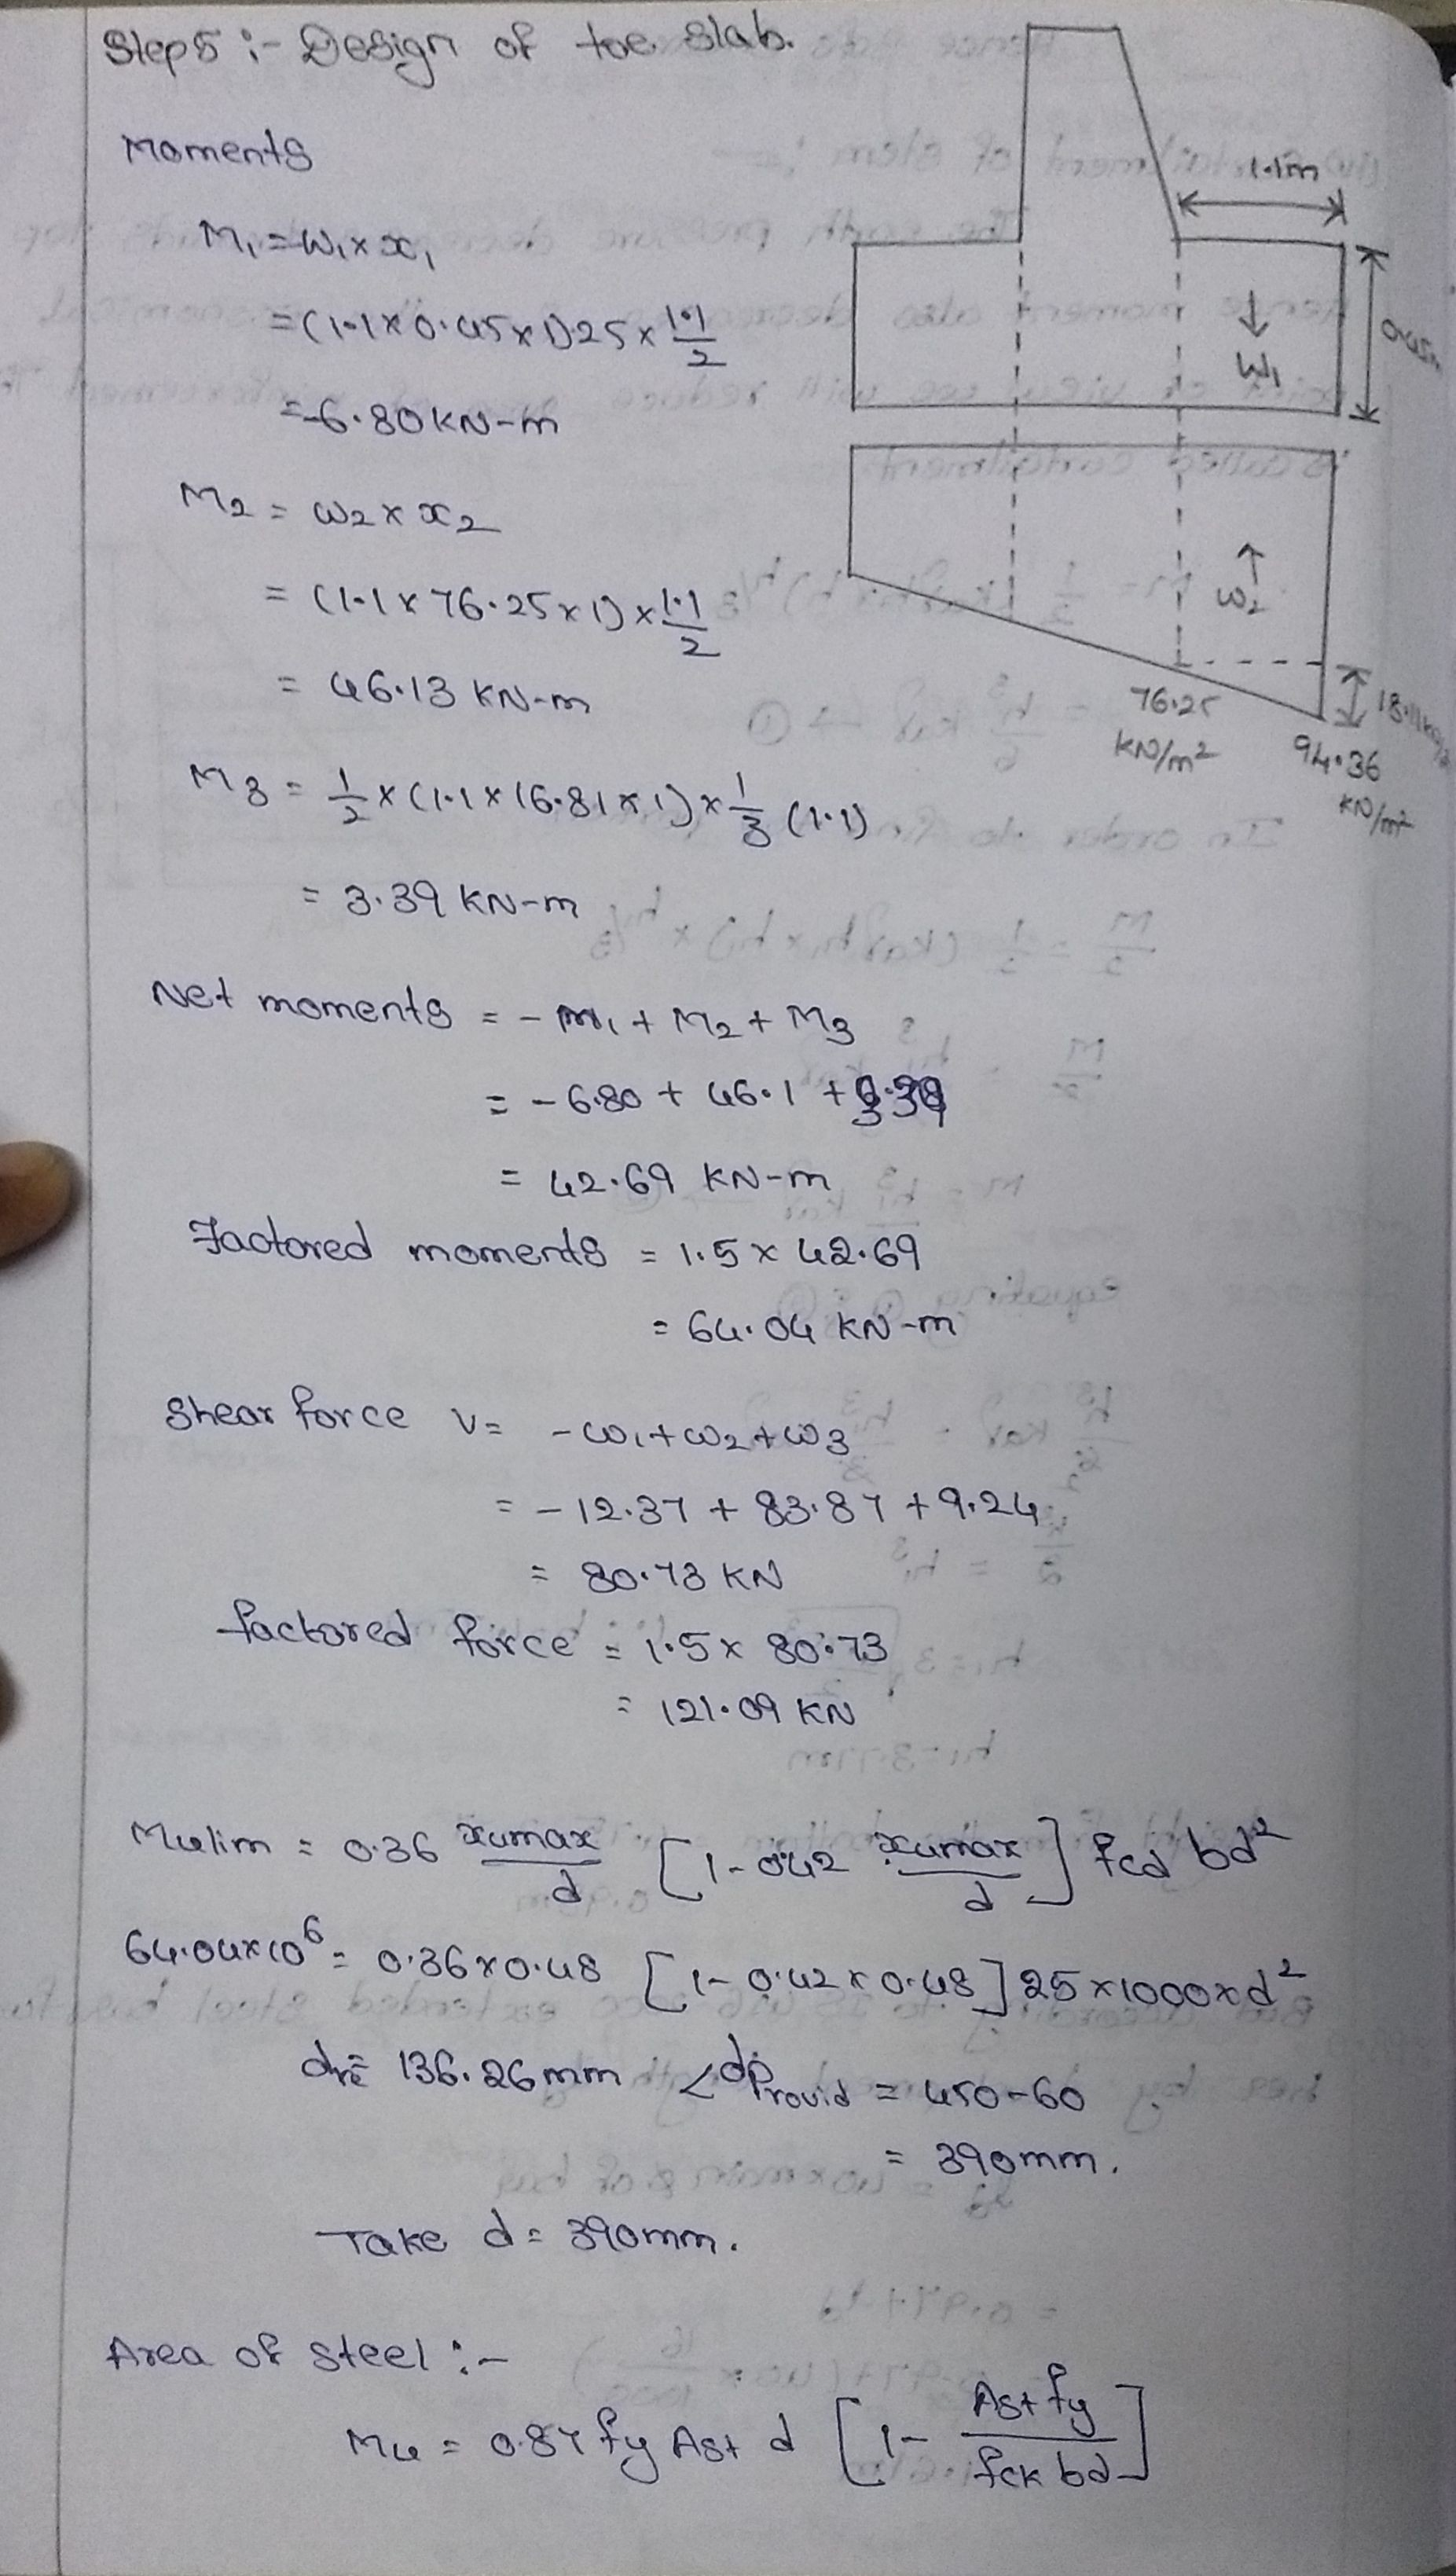 Step 5 :- Design of toe slab.
Moments
M1 = W1 × x1
= (1.1 × 0.45 × 1) 25 × 1.1/2
= -6.80 KN-m
M2 = W2 × x2
= (1.1 × 76.25 × 1) × 1.1/2
= 46.13 KN-m
M3 = 1/2 × (1.1 × 16.81 × 1) × 1/3 (1.1)
= 3.39 KN-m
Net moments = - M1 + M2 + M3
= - 6.80 + 46.1 + 3.39
= 42.69 KN-m
Factored moments = 1.5 × 42.69
= 64.04 KN-m
Shear force V = - W1 + W2 + W3
= - 12.37 + 83.87 + 9.24
= 80.73 KN
factored force = 1.5 × 80.73
= 121.09 KN
Mulim = 0.36 xumax/d [1 - 0.42 xumax/d] fcd bd²
64.04×10⁶ = 0.36 × 0.48 [1 - 0.42 × 0.48] 25 × 1000 × d²
= 136.26mm < dProvid = 450-60
= 390mm.
Take d = 390mm.
Area of steel :-
Mu = 0.87 fy Ast d [1 - Ast fy/fck bd]
1.1m
W1
0.45m
W2
76.25 KN/m²
94.36 KN/m²
18.11